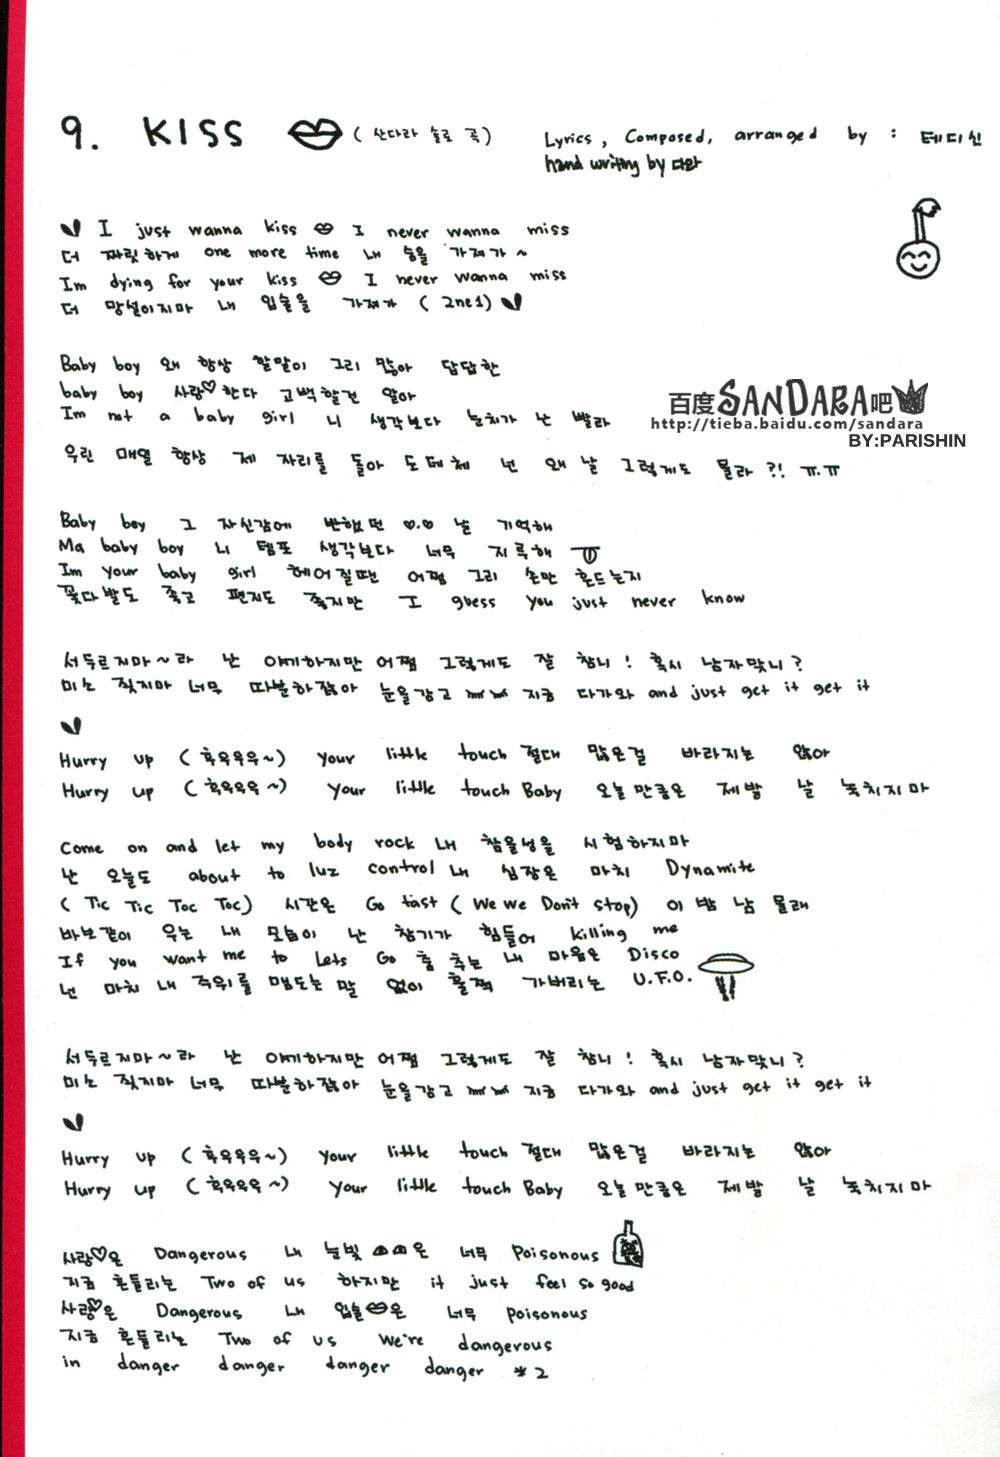 9. KISS (산다라 솔로 곡)
Lyrics, Composed, arranged by : 테디신
hand writing by 다라
I just wanna kiss I never wanna miss
더 짜릿하게 one more time 내 숨을 가져가~
Im dying for your kiss I never wanna miss
더 망설이지마 내 입술을 가져가 (2ne1)
Baby boy 왜 항상 할말이 그리 많아 답답한
baby boy 사랑♡한다 고백할건 알아
Im not a baby girl 니 생각보다 눈치가 난 빨라
百度SANDARA吧
http://tieba.baidu.com/sandara
BY:PARISHIN
우린 매일 항상 제 자리를 돌아 도데체 넌 왜 날 그렇게도 몰라?! ㅠ.ㅠ
Baby boy 그 자신감에 반했던 ♡.♡ 날 기억해
Ma baby boy 니 템포 생각보다 너무 지루해
Im your baby girl 헤어질땐 어쩜 그리 손만 흔드는지
꽃다발도 좋고 편지도 좋지만 I guess you just never know
서두르지마~라 난 얘기하지만 어쩜 그렇게도 잘 참니! 혹시 남자맞니?
미소 짓지마 너무 따분하잖아 눈을감고 지금 다가와 and just get it get it
Hurry up (후우우우~) your little touch 절대 많은걸 바라지는 않아
Hurry up (후우우우~) your little touch Baby 오늘 만큼은 제발 날 놓치지마
Come on and let my body rock 내 참을성을 시험하지마
난 오늘도 about to luz control 내 심장은 마치 Dynamite
(Tic Tic Toc Toc) 시간은 Go fast (We we Don't stop) 이 밤 남 몰래
바보같이 우는 내 모습이 난 참기가 힘들어 killing me
If you want me to Lets Go 춤 추는 내 마음은 Disco
넌 마치 내 주위를 맴도는 말 없이 훌쩍 가버리는 U.F.O.
서두르지마~라 난 얘기하지만 어쩜 그렇게도 잘 참니! 혹시 남자맞니?
미소 짓지마 너무 따분하잖아 눈을감고 지금 다가와 and just get it get it
Hurry up (후우우우~) your little touch 절대 많은걸 바라지는 않아
Hurry up (후우우우~) your little touch Baby 오늘 만큼은 제발 날 놓치지마
사랑♡은 Dangerous 내 눈빛은 너무 Poisonous
지금 흔들리는 Two of us 하지만 it just feel so good
사랑♡은 Dangerous 내 입술은 너무 Poisonous
지금 흔들리는 Two of us We're dangerous
in danger danger danger danger *2